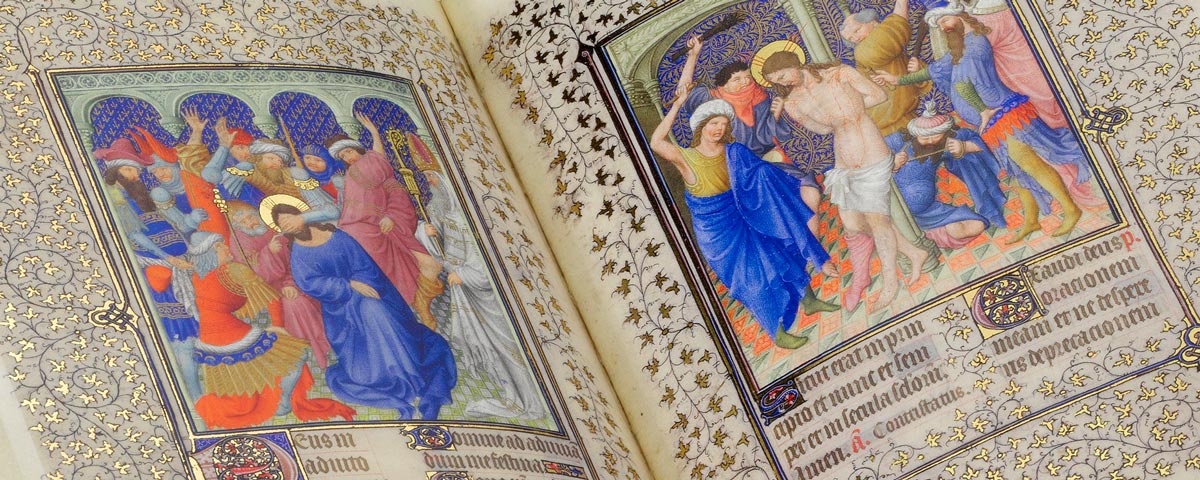 Deus in
adiuto
Domine ad adiuva
dum me festina
Sicut erat in prin
cipio et nunc et sem
per et in secula
Amen. a. Contristatus.
Exaudi deus p.
oracionem
meam et ne despexe
ris deprecacionem